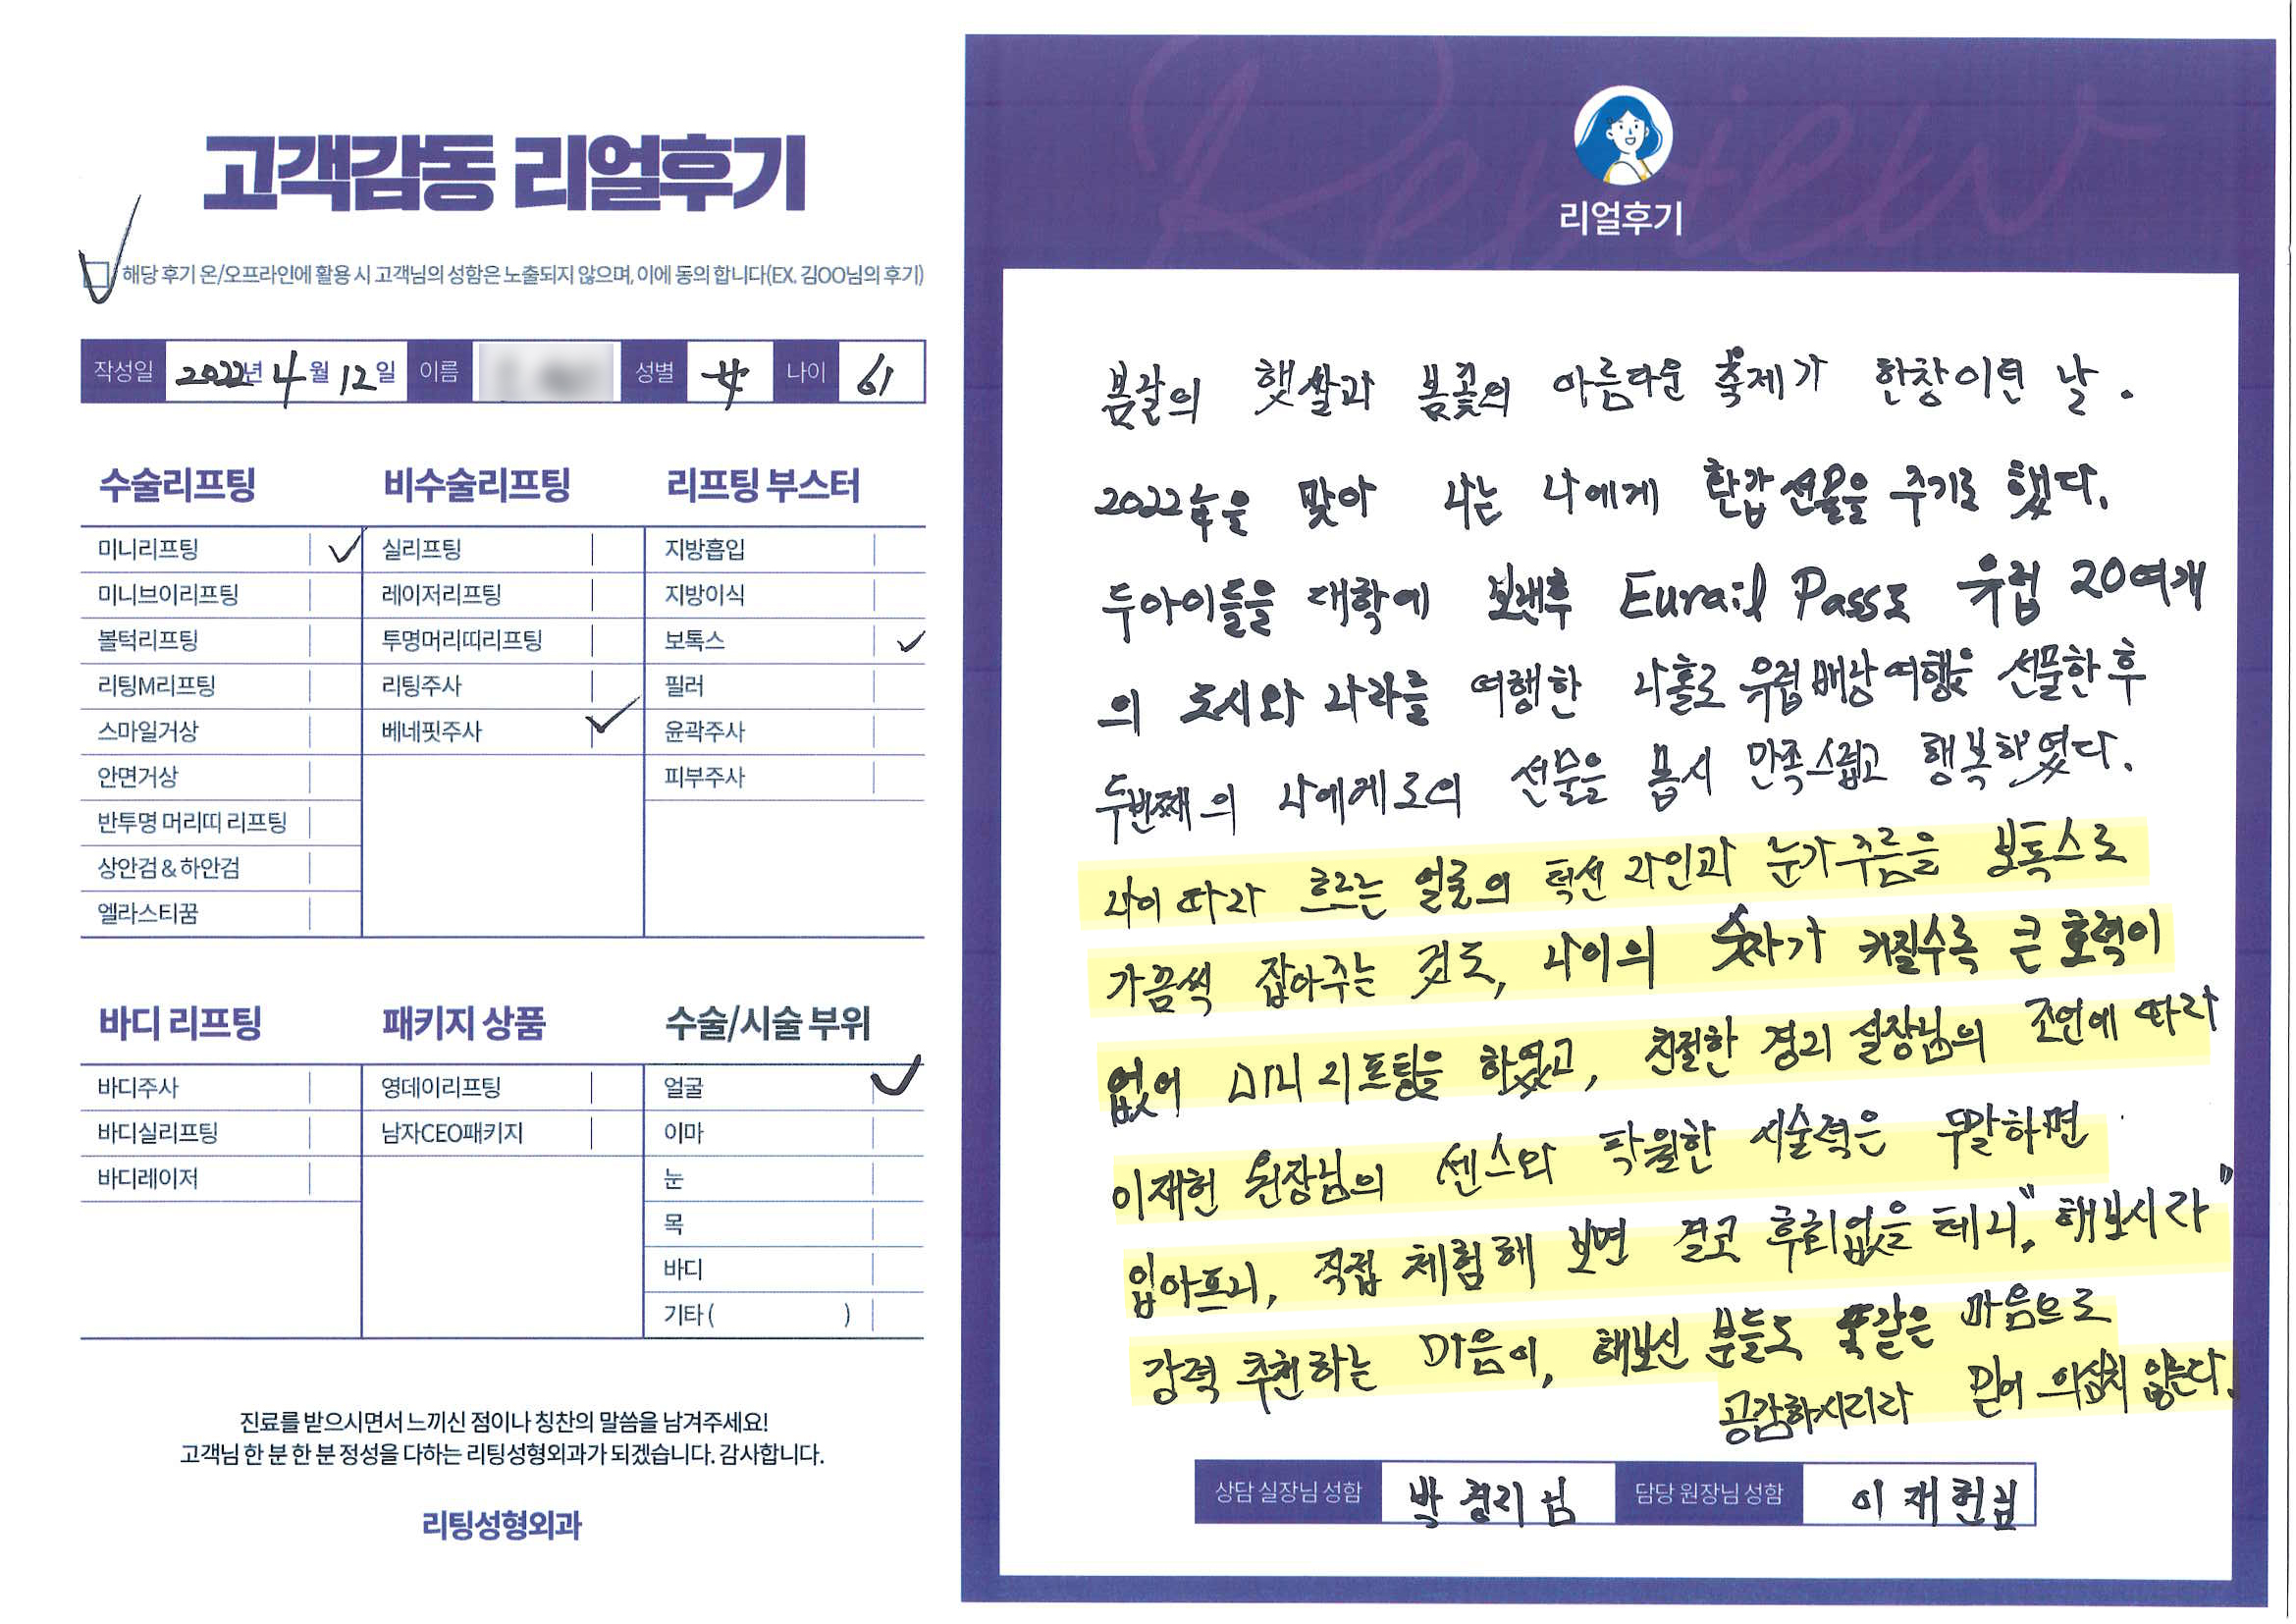 고객감동 리얼후기
해당 후기 온/오프라인에 활용 시 고객님의 성함은 노출되지 않으며, 이에 동의 합니다(EX. 김OO님의 후기)
작성일 2022년 4월 12일 이름 성별 女 나이 61
수술리프팅 비수술리프팅 리프팅 부스터
미니리프팅 실리프팅 지방흡입
미니브이리프팅 레이저리프팅 지방이식
볼턱리프팅 투명머리띠리프팅 보톡스
리팅M리프팅 리팅주사 필러
스마일거상 베네핏주사 윤곽주사
안면거상 피부주사
반투명 머리띠 리프팅
상안검 & 하안검
엘라스티꿈
바디 리프팅 패키지 상품 수술/시술 부위
바디주사 영데이리프팅 얼굴
바디실리프팅 남자CEO패키지 이마
바디레이저 눈
목
바디
기타 ( )
진료를 받으시면서 느끼신 점이나 칭찬의 말씀을 남겨주세요!
고객님 한 분 한 분 정성을 다하는 리팅성형외과가 되겠습니다. 감사합니다.
리팅성형외과
Review
리얼후기
봄날의 햇쌀과 봄꽃의 아름다운 축제가 한창이던 날.
2022年을 맞아 나는 나에게 환갑선물을 주기로 했다.
두아이들을 대학에 보낸후 Eurail Pass로 유럽 20여개
의 도시와 나라를 여행한 나홀로 유럽배낭여행을 선물한후
두번째의 나에게로의 선물을 몹시 만족스럽고 행복하였다.
나이 따라 흐르는 얼굴의 턱선 라인과 눈가주름을 보톡스로
가끔씩 잡아주는 것도, 나이의 숫자가 커질수록 큰 효력이
없어 미니 리프팅을 하였고, 친절한 경리 실장님의 조언에 따라
이재헌 원장님의 센스와 탁월한 시술력은 두말하면
입아프니, 직접 체험해 보면 결코 후회없을 테니, "해보시라"
강력 추천하는 마음이, 해보신 분들도 똑같은 마음으로
공감하시리라 믿어 의심치 않는다.
상담 실장님 성함 박경리님 담당 원장님 성함 이재헌님